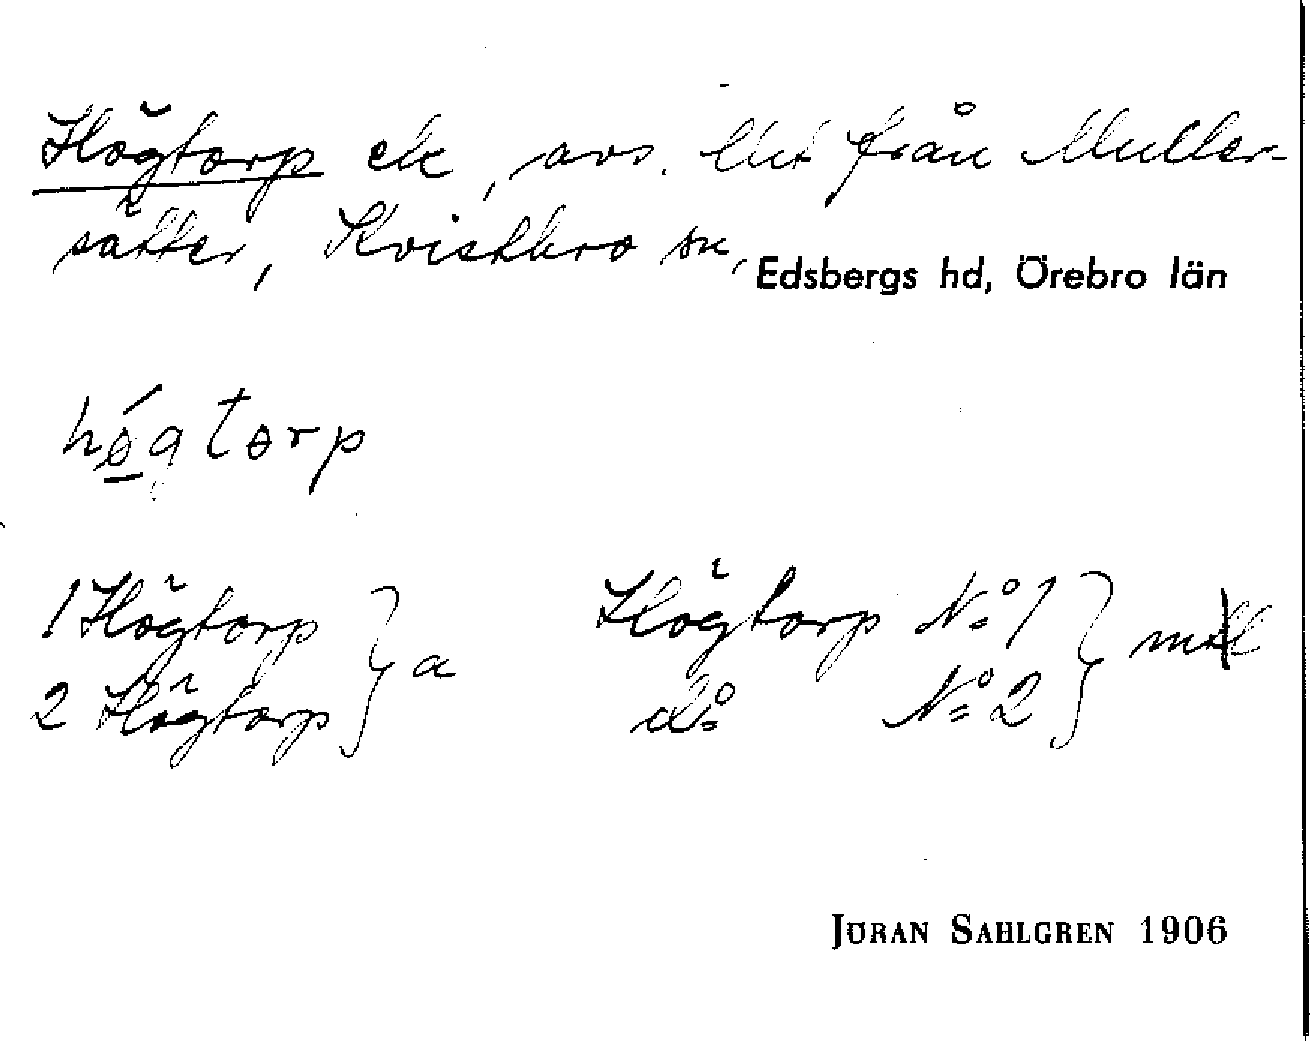 Högtorp ek, avs. till från Muller-
sätter, Kvistbro sn, Edsbergs hd, Örebro län
hǿgtɵrp
1 Högtorp } a
2 Högtorp
Högtorp No 1 } mtl
do No 2
JÖRAN SAHLGREN 1906